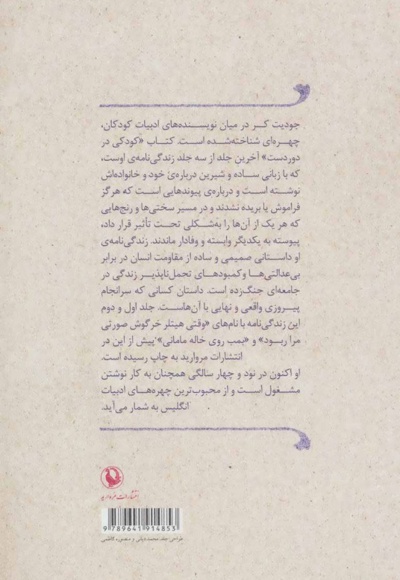 جودیت کر در میان نویسنده‌های ادبیات کودکان،
چهره‌ای شناخته‌شده است. کتاب «کودکی در
دوردست» آخرین جلد از سه جلد زندگی‌نامه‌ی اوست،
که با زبانی ساده و شیرین درباره‌ی خود و خانواده‌اش
نوشته است و درباره‌ی پیوندهایی است که هرگز
فراموش یا بریده نشدند و در مسیر سختی‌ها و رنج‌هایی
که هر یک از آن‌ها را به‌شکلی تحت تأثیر قرار داد،
پیوسته به یکدیگر وابسته و وفادار ماندند. زندگی‌نامه‌ی
او داستانی صمیمی و ساده از مقاومت انسان در برابر
بی‌عدالتی‌ها و کمبودهای تحمل‌ناپذیر زندگی در
جامعه‌ای جنگ‌زده است. داستان کسانی که سرانجام
پیروزی واقعی و نهایی با آن‌هاست. جلد اول و دوم
این زندگی‌نامه با نام‌های «وقتی هیتلر خرگوش صورتی
مرا ربود» و «بمب روی خاله مامانی» پیش از این در
انتشارات مروارید به چاپ رسیده است.
او اکنون در نود و چهار سالگی همچنان به کار نوشتن
مشغول است و از محبوب‌ترین چهره‌های ادبیات
انگلیس به شمار می‌آید.
انتشارات مروارید
9 789641 914853